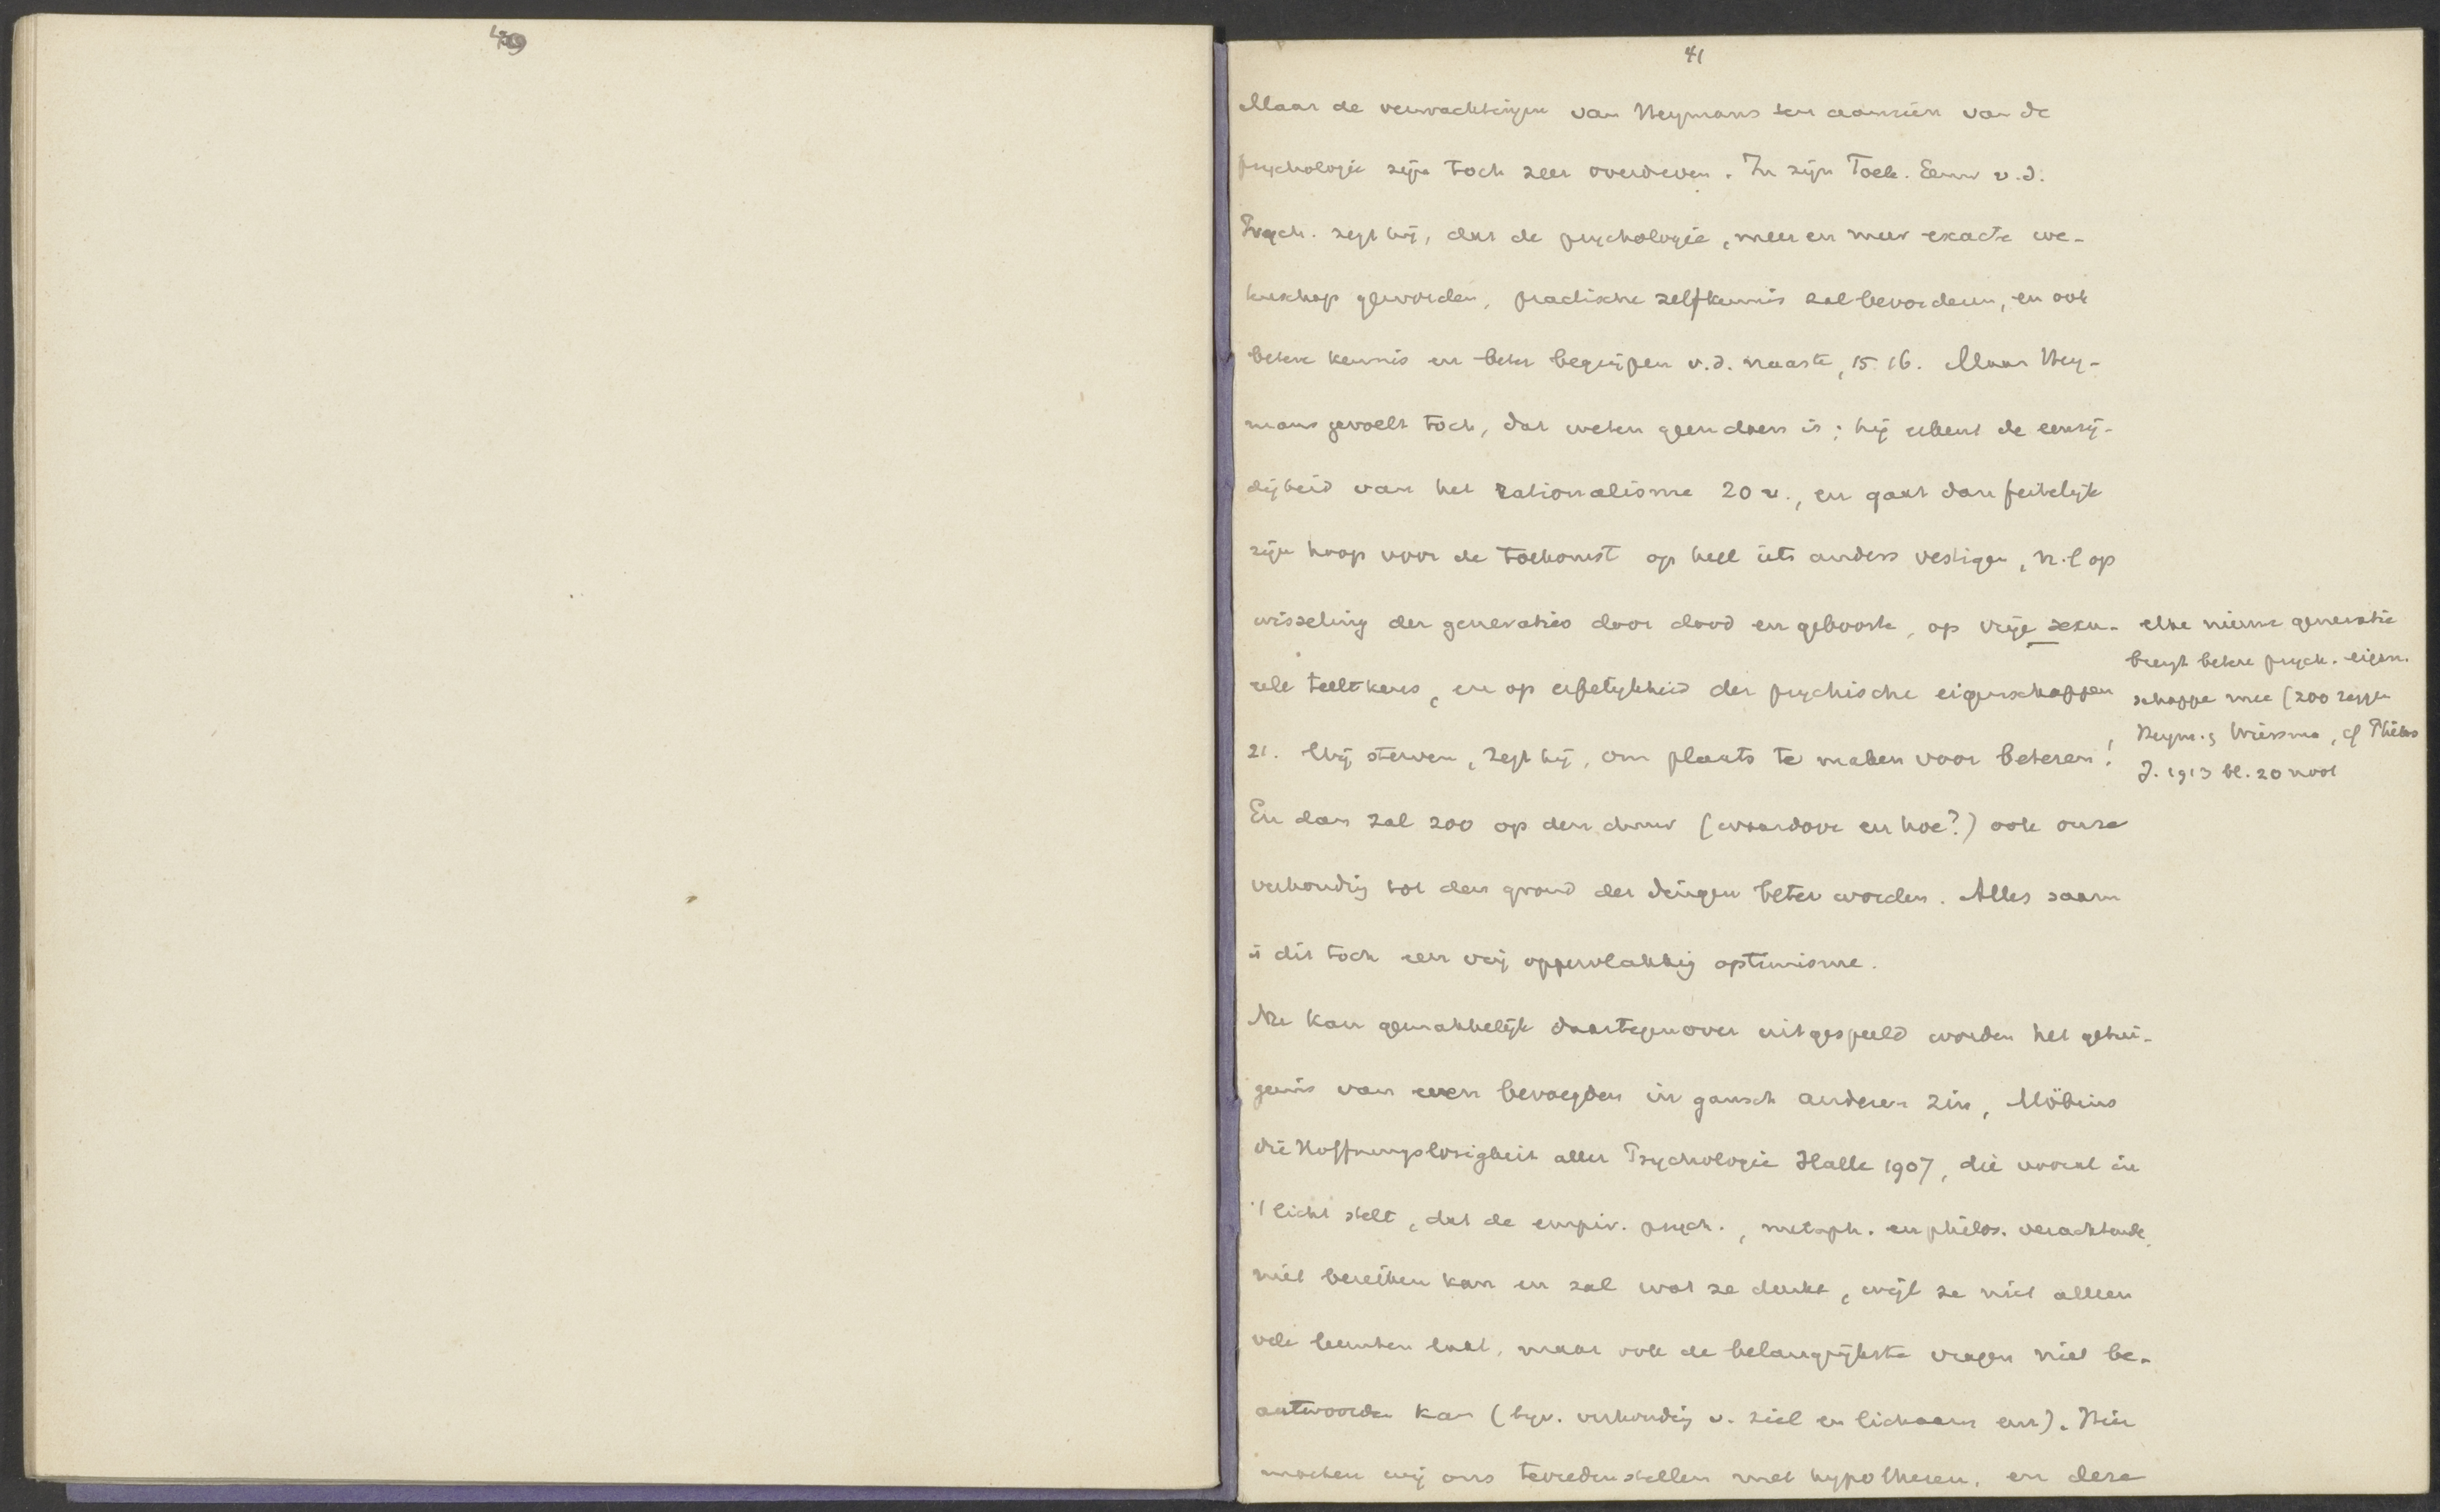 41
Maar de verwachtingen van Heymans ten aanzien van de
psychologie zijn toch zeer overdreven. In zijn Toek. Eeuw v.d.
Psych. zegt hij, dat de psychologie, meer en meer exacte we-
tenschap geworden, practische zelfkennis zal bevorderen, en ook
betere kennis en beter begrijpen v.d. naaste, 15.16. Maar Hey-
mans gevoelt toch, dat weten geen doen is; hij erkent de eenzij-
digheid van het rationalisme 20 v., en gaat dan feitelijk
zijn hoop voor de toekomst op heel iets anders vestigen, n.l. op
wisseling der generaties door dood en geboorte, op vrije sexu-
eele teeltkeus, en op erfelijkheid der psychische eigenschappen
21. Wij sterven, zegt hij, om plaats te maken voor beteren!
elke nieuwe generatie
brengt betere psych. eigen-
schappen mee (zoo zeggen
Heym. & Wiersma, cf Philos
J. 1913 bl. 20 noot
En dan zal zoo op den duur (waardoor en hoe?) ook onze
verhouding tot den grond der dingen beter worden. Alles saam
is dit toch een vrij oppervlakkig optimisme.
Nu kan gemakkelijk daartegenover uitgespeeld worden het getui-
genis van een bevoegden in gansch anderen zin, Möbius
die Hoffnungslosigkeit aller Psychologie Halle 1907, die vooral in
't licht stelt, dat de empir. psych., metaph. en philos. verachtende,
niet bereiken kan en zal wat ze denkt, wijl ze niet alleen
vele leemten laat, maar ook de belangrijkste vragen niet be-
antwoorden kan (bijv. verhouding v. ziel en lichaam enz). Hier
moeten wij ons tevredenstellen met hypothesen, en deze